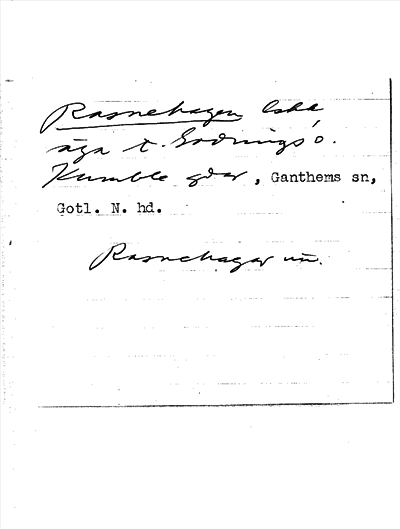 Rasnehagen, bska
äga t. Godrings o.
Kumble gdar, Ganthems sn,
Gotl. N. hd.
Rasnehagar un.